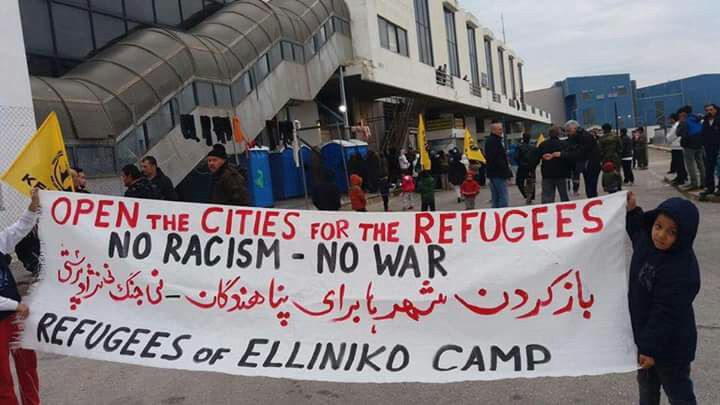 OPEN THE CITIES FOR THE REFUGEES
NO RACISM - NO WAR
باز کردن شهرها برای پناهندگان - نی جنگ نی نژادپرستی
REFUGEES OF ELLINIKO CAMP